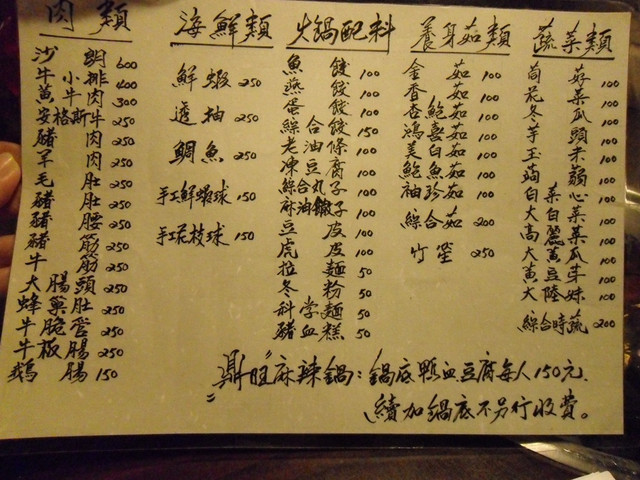 肉類
沙朗 600
牛小排 400
萬牛肉 300
安格斯牛 250
豬肉 250
羊肉 250
毛肚 250
豬肚 250
豬腰 250
豬筋 250
牛筋 250
大腸頭 250
蜂巢肚 250
牛脆管 250
牛板腸 250
鵝腸 150
海鮮類
鮮蝦 250
透抽 250
鯛魚 250
手工鮮蝦球 150
手工花枝球 150
火鍋配料
魚餃 100
燕餃 100
蛋餃 100
綜合餃 150
老油條 100
凍豆腐 100
綜合丸子 100
麻油馓子 100
豆皮 100
虎皮 100
拉麵 50
冬粉 50
科学麵 50
豬血糕 50
養身菇類
金菇 100
香菇 100
杏鮑菇 100
鴻喜菇 100
美白菇 100
鮑魚菇 100
袖珍菇 100
綜合菇 200
竹笙 250
蔬菜類
茼蒿 100
花菜 100
冬瓜 100
芋頭 100
玉米 100
蒟蒻 100
白菜心 100
大白菜 100
高麗菜 100
大黃瓜 100
黃豆芽 100
大陸妹 100
綜合時蔬 200
"鼎旺"麻辣鍋：鍋底鴨血豆腐每人150元.
續加鍋底不另行收費。